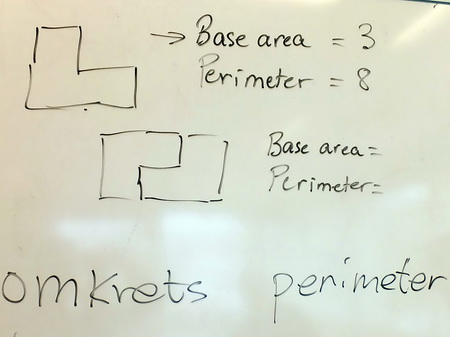 → Base area = 3
Perimeter = 8
Base area =
Perimeter =
omkrets perimeter